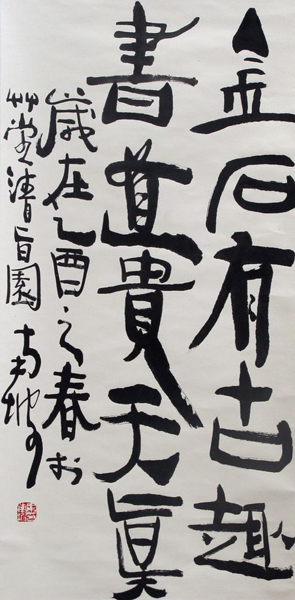 金石有古趣
書道貴天真
歲在乙酉之春於
草堂清旨園